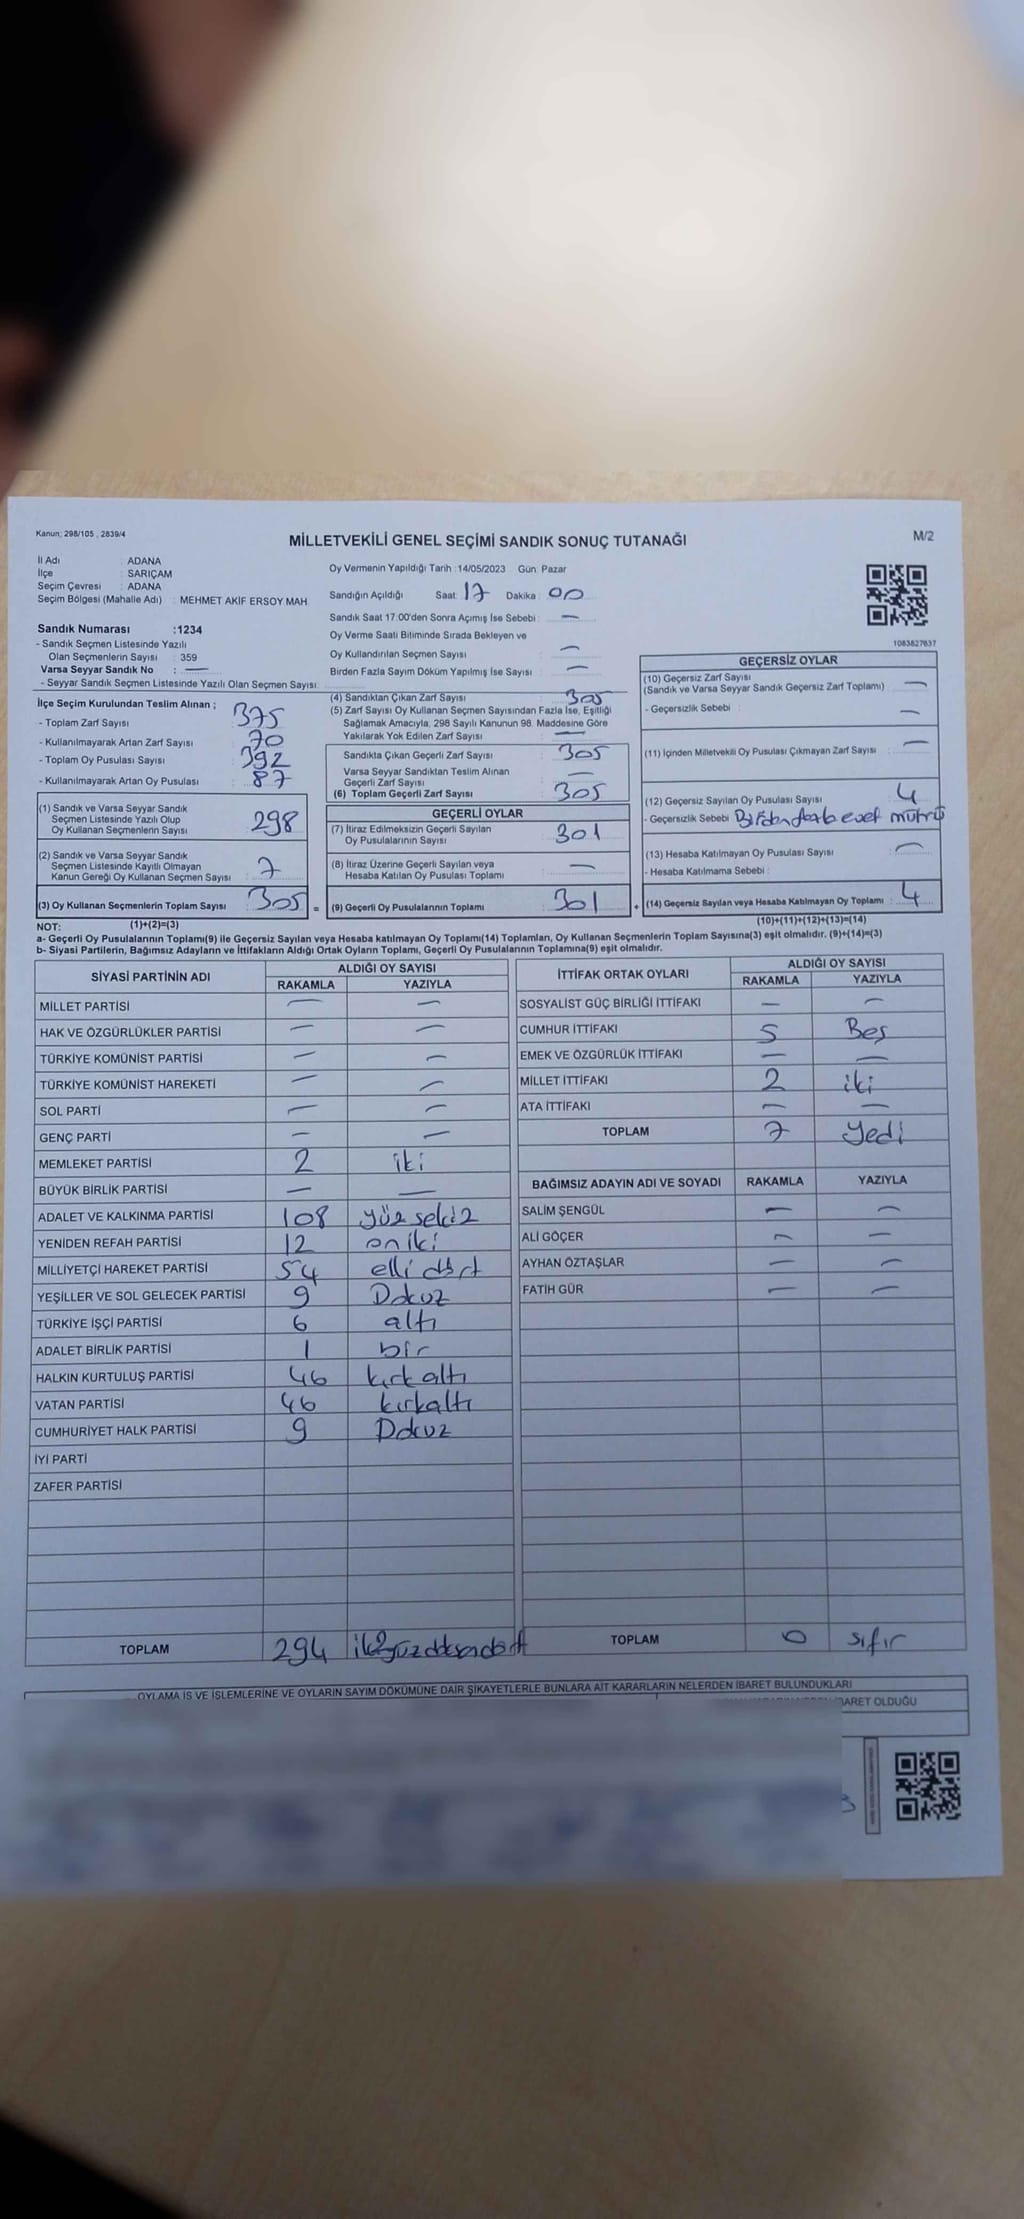 Kanun; 298/105 , 2839/4
MİLLETVEKİLİ GENEL SEÇİMİ SANDIK SONUÇ TUTANAĞI
M/2
İl Adı : ADANA
İlçe : SARIÇAM
Seçim Çevresi : ADANA
Seçim Bölgesi (Mahalle Adı) : MEHMET AKİF ERSOY MAH
Sandık Numarası :1234
- Sandık Seçmen Listesinde Yazılı
Olan Seçmenlerin Sayısı : 359
Varsa Seyyar Sandık No : —
- Seyyar Sandık Seçmen Listesinde Yazılı Olan Seçmen Sayısı:
Oy Vermenin Yapıldığı Tarih :14/05/2023 Gün: Pazar
Sandığın Açıldığı Saat: 17 Dakika : 00
Sandık Saat 17:00'den Sonra Açımış İse Sebebi : —
Oy Verme Saati Bitiminde Sırada Bekleyen ve
Oy Kullandırılan Seçmen Sayısı : —
Birden Fazla Sayım Döküm Yapılmış İse Sayısı : —
1083827637
İlçe Seçim Kurulundan Teslim Alınan ;
- Toplam Zarf Sayısı : 375
- Kullanılmayarak Artan Zarf Sayısı : 70
- Toplam Oy Pusulası Sayısı : 392
- Kullanılmayarak Artan Oy Pusulası : 87
(1) Sandık ve Varsa Seyyar Sandık
Seçmen Listesinde Yazılı Olup
Oy Kullanan Seçmenlerin Sayısı : 298
(2) Sandık ve Varsa Seyyar Sandık
Seçmen Listesinde Kayıtlı Olmayan
Kanun Gereği Oy Kullanan Seçmen Sayısı : 7
(3) Oy Kullanan Seçmenlerin Toplam Sayısı : 305 =
(4) Sandıktan Çıkan Zarf Sayısı : 305
(5) Zarf Sayısı Oy Kullanan Seçmen Sayısından Fazla İse, Eşitliği
Sağlamak Amacıyla, 298 Sayılı Kanunun 98. Maddesine Göre
Yakılarak Yok Edilen Zarf Sayısı : —
Sandıkta Çıkan Geçerli Zarf Sayısı : 305
Varsa Seyyar Sandıktan Teslim Alınan
Geçerli Zarf Sayısı : —
(6) Toplam Geçerli Zarf Sayısı : 305
GEÇERLİ OYLAR
(7) İtiraz Edilmeksizin Geçerli Sayılan
Oy Pusulalarının Sayısı : 301
(8) İtiraz Üzerine Geçerli Sayılan veya
Hesaba Katılan Oy Pusulası Toplamı : —
(9) Geçerli Oy Pusulalarının Toplamı : 301 +
GEÇERSİZ OYLAR
(10) Geçersiz Zarf Sayısı
(Sandık ve Varsa Seyyar Sandık Geçersiz Zarf Toplamı) : —
- Geçersizlik Sebebi : —
(11) İçinden Milletvekili Oy Pusulası Çıkmayan Zarf Sayısı : —
(12) Geçersiz Sayılan Oy Pusulası Sayısı : 4
- Geçersizlik Sebebi : Birden fazla evet mührü
(13) Hesaba Katılmayan Oy Pusulası Sayısı : —
- Hesaba Katılmama Sebebi :
(14) Geçersiz Sayılan veya Hesaba Katılmayan Oy Toplamı : 4
NOT: (1)+(2)=(3)
(10)+(11)+(12)+(13)=(14)
a- Geçerli Oy Pusulalarının Toplamı(9) ile Geçersiz Sayılan veya Hesaba katılmayan Oy Toplamı(14) Toplamları, Oy Kullanan Seçmenlerin Toplam Sayısına(3) eşit olmalıdır. (9)+(14)=(3)
b- Siyasi Partilerin, Bağımsız Adayların ve İttifakların Aldığı Ortak Oyların Toplamı, Geçerli Oy Pusulalarının Toplamına(9) eşit olmalıdır.
SİYASİ PARTİNİN ADI ALDIĞI OY SAYISI
RAKAMLA YAZIYLA
MİLLET PARTİSİ — —
HAK VE ÖZGÜRLÜKLER PARTİSİ — —
TÜRKİYE KOMÜNİST PARTİSİ — —
TÜRKİYE KOMÜNİST HAREKETİ — —
SOL PARTİ — —
GENÇ PARTİ — —
MEMLEKET PARTİSİ 2 iki
BÜYÜK BİRLİK PARTİSİ — —
ADALET VE KALKINMA PARTİSİ 108 yüz sekiz
YENİDEN REFAH PARTİSİ 12 oniki
MİLLİYETÇİ HAREKET PARTİSİ 54 elli dört
YEŞİLLER VE SOL GELECEK PARTİSİ 9 Dokuz
TÜRKİYE İŞÇİ PARTİSİ 6 altı
ADALET BİRLİK PARTİSİ 1 bir
HALKIN KURTULUŞ PARTİSİ 46 kırk altı
VATAN PARTİSİ 46 kırkaltı
CUMHURİYET HALK PARTİSİ 9 Dokuz
İYİ PARTİ
ZAFER PARTİSİ
TOPLAM 294 ikiyüzdoksandört
İTTİFAK ORTAK OYLARI ALDIĞI OY SAYISI
RAKAMLA YAZIYLA
SOSYALİST GÜÇ BİRLİĞİ İTTİFAKI — —
CUMHUR İTTİFAKI 5 Beş
EMEK VE ÖZGÜRLÜK İTTİFAKI — —
MİLLET İTTİFAKI 2 iki
ATA İTTİFAKI — —
TOPLAM 7 Yedi
BAĞIMSIZ ADAYIN ADI VE SOYADI RAKAMLA YAZIYLA
SALİM ŞENGÜL — —
ALİ GÖÇER — —
AYHAN ÖZTAŞLAR — —
FATİH GÜR — —
TOPLAM 0 sıfır
OYLAMA İŞ VE İŞLEMLERİNE VE OYLARIN SAYIM DÖKÜMÜNE DAİR ŞİKAYETLERLE BUNLARA AİT KARARLARIN NELERDEN İBARET BULUNDUKLARI
İBARET OLDUĞU